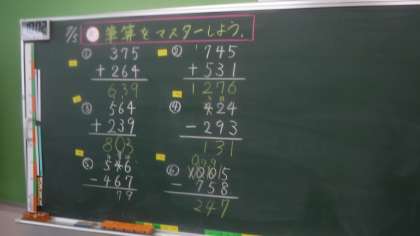 7/5 筆算をマスターしよう.
① 375
+ 264
639
② 745
+ 531
1276
③ 564
+ 239
803
④ 424
- 293
131
⑤ 546
- 467
79
⑥ 1005
- 758
247